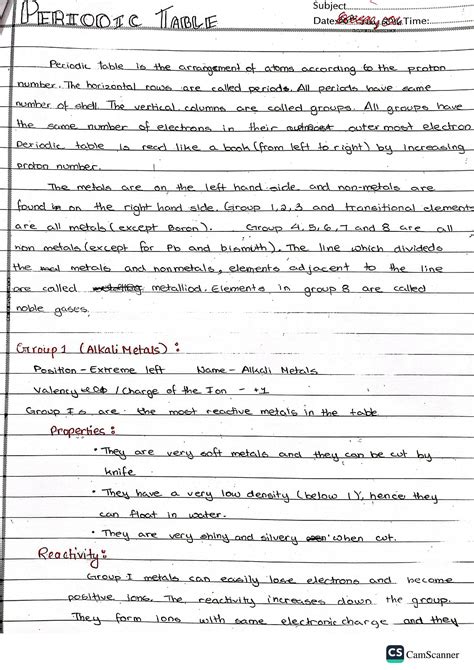 PERIODIC TABLE
Subject
Date: Time:
Periodic table is the arrangement of atoms according to the proton
number. The horizontal rows are called periods. All periods have same
number of shell. The vertical columns are called groups. All groups have
the same number of electrons in their outer most electron
Periodic table is read like a book (from left to right) by increasing
proton number.
The metals are on the left hand side and non-metals are
found on the right hand side. Group 1, 2, 3 and transitional element
are all metals (except Boron). Group 4, 5, 6, 7 and 8 are all
non metals (except for Pb and bismuth). The line which divideds
the metals and nonmetals, elements adjacent to the line
are called metalliod. Elements in group 8 are called
noble gases.
Group 1 (Alkali Metals) :
Position - Extreme left Name - Alkali Metals
Valency / Charge of the Ion - +1
Group I s are the most reactive metals in the table
Properties :
• They are very soft metals and they can be cut by
knife
• They have a very low density (below 1), hence they
can float in water.
• They are very shiny and silvery when cut.
Reactivity :
Group I metals can easily lose electrons and become
positive ions. The reactivity increases down the group.
They form ions with same electronic charge and they
CS CamScanner